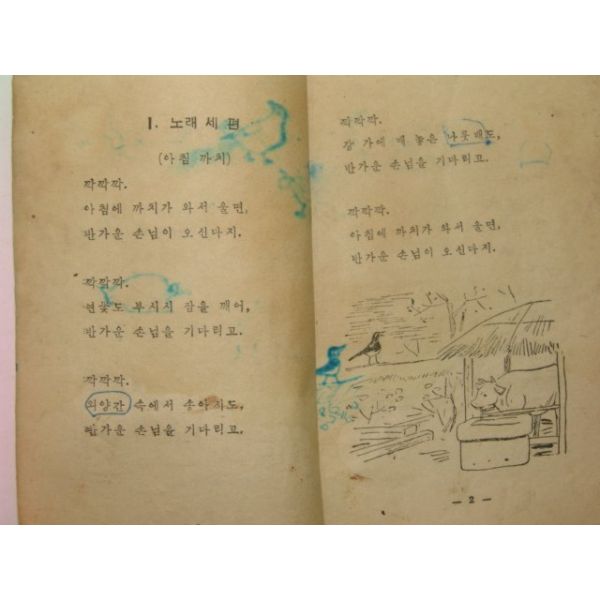 1. 노래 세 편
(아침 까치)
깍깍깍.
아침에 까치가 와서 울면,
반가운 손님이 오신다지.
깍깍깍.
연꽃도 부시시 잠을 깨어,
반가운 손님을 기다리고.
깍깍깍.
외양간 속에서 송아지도,
반가운 손님을 기다리고.
깍깍깍.
강 가에 매 놓은 나룻배도,
반가운 손님을 기다리고.
깍깍깍.
아침에 까치가 와서 울면,
반가운 손님이 오신다지.
— 2 —